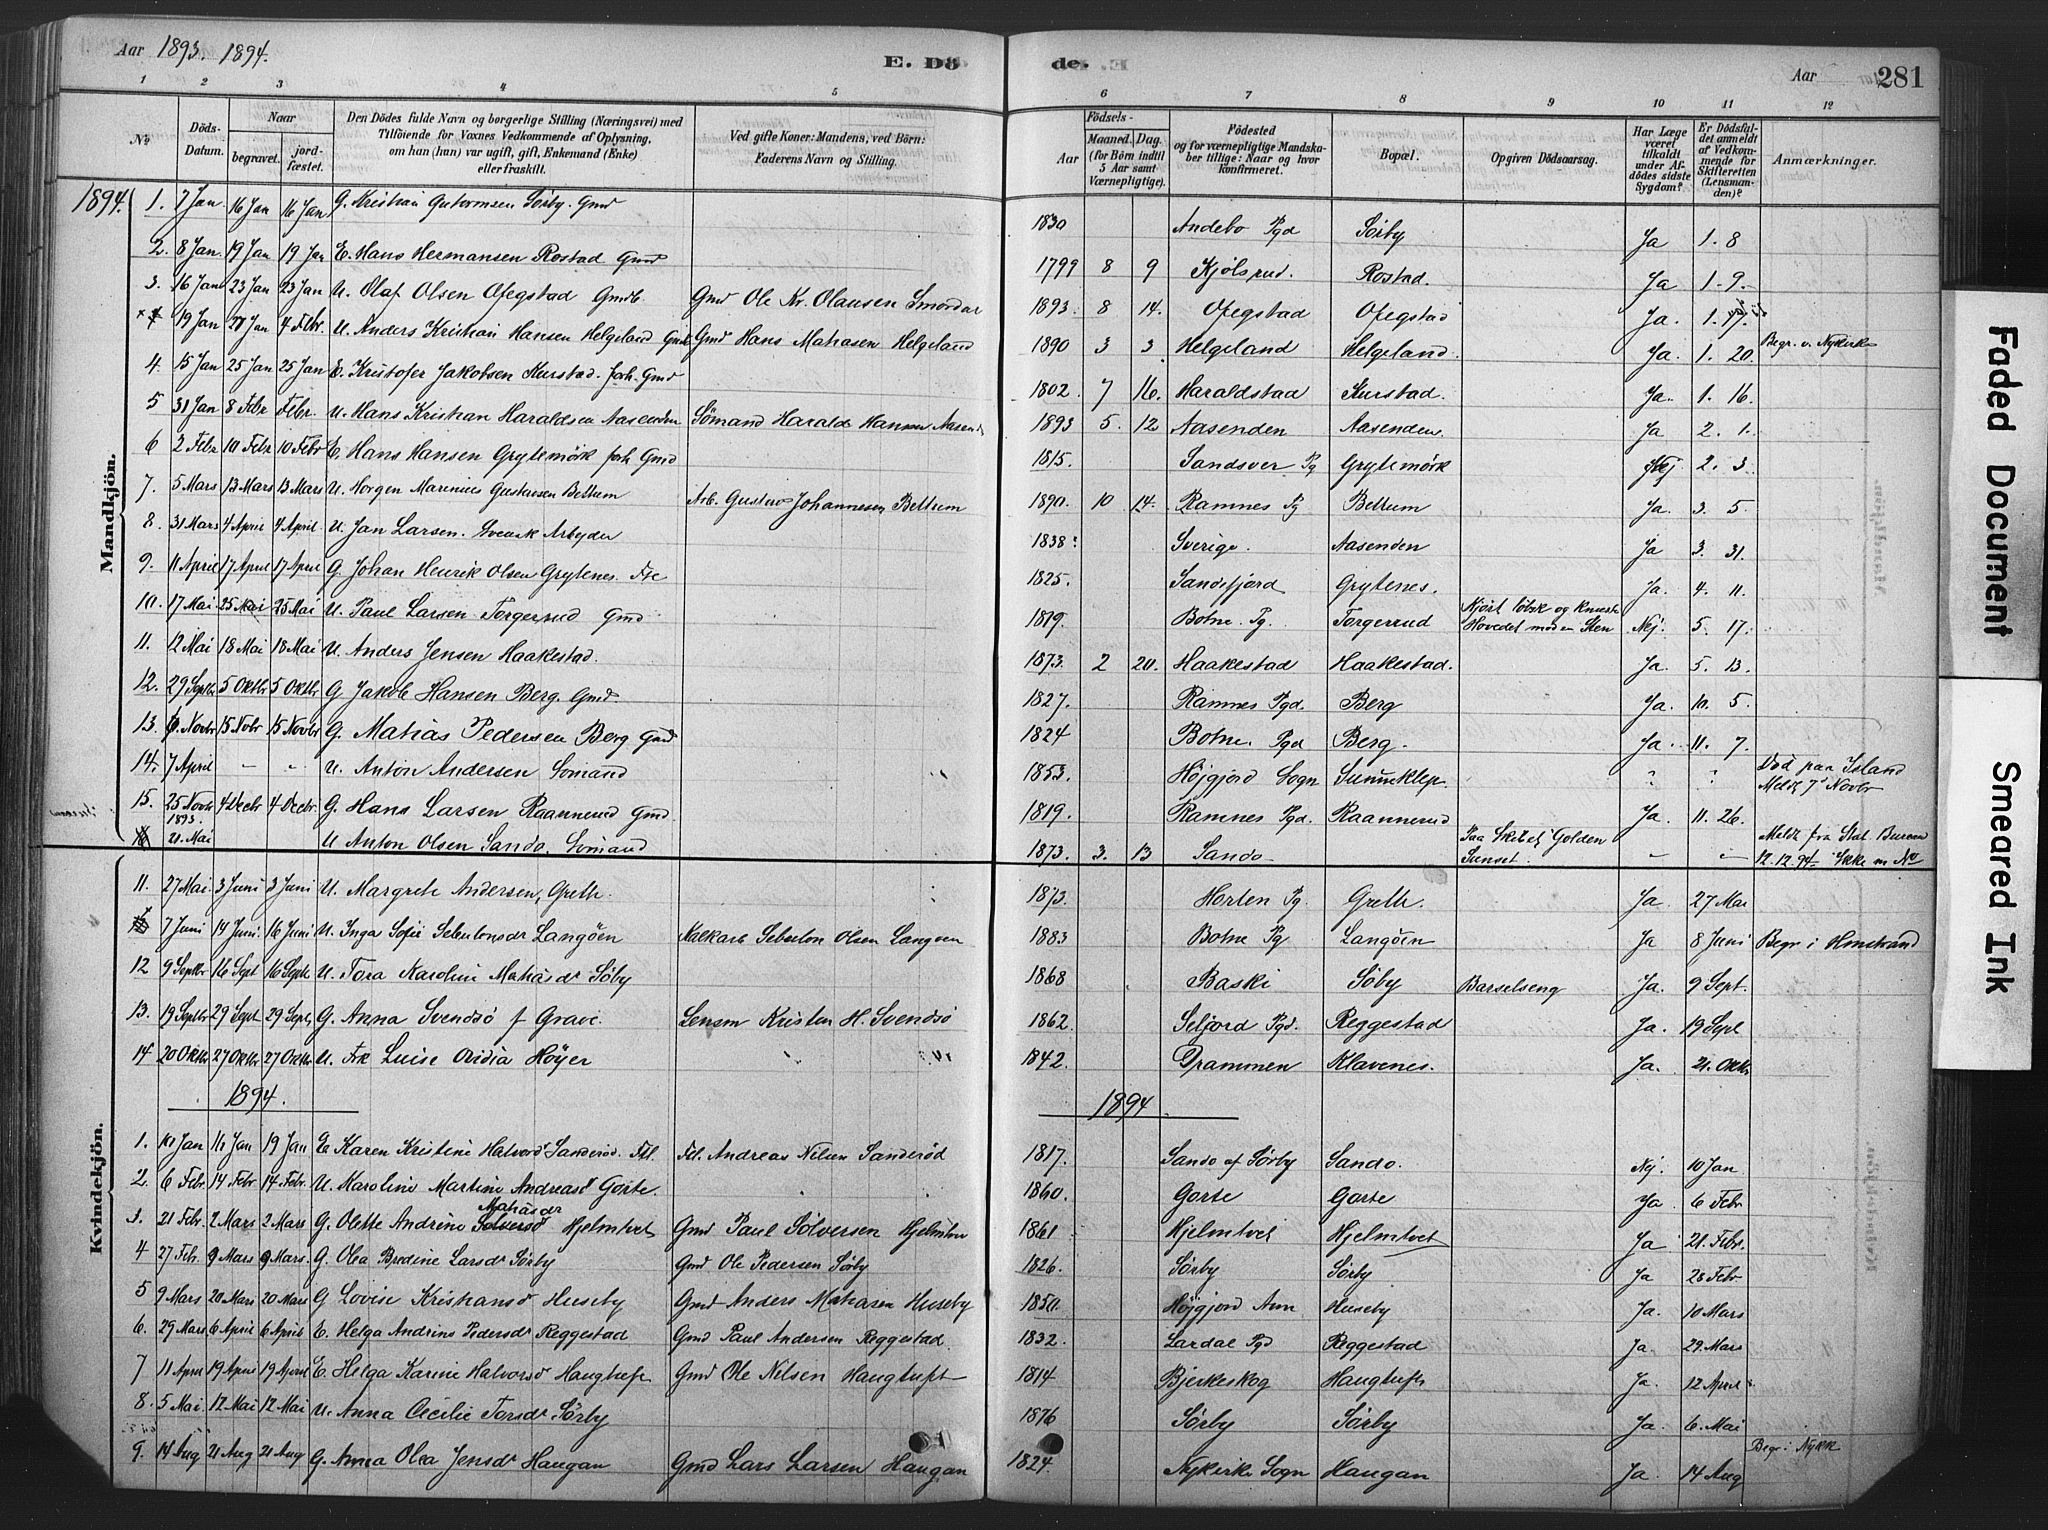 Aar 1893. 1894.
E. Dö
de.
Aar
281
1 2 3 4 5
6 7 8 9 10 11 12
No
Döds-Datum.
Naar
begravet.
jordfæstet.
Den Dödes fulde Navn og borgerlige Stilling (Næringsvei) med
Tilföiende for Voxnes Vedkommende af Oplysning,
om han (hun) var ugift, gift, Enkemand (Enke)
eller fraskilt.
Ved gifte Koner: Mandens, ved Börn:
Faderens Navn og Stilling.
Födsels-
Aar
Maaned. Dag.
(for Börn indtil
5 Aar samt
Værnepligtige).
Födested
og for værnepligtige Mandskaber tillige: Naar og hvor
konfirmeret.
Bopæl.
Opgiven Dödsaarsag.
Har Læge
været
tilkaldt
under Afdödes sidste
Sygdom?
Er Dödsfaldet anmeldt
af Vedkommende for
Skifteretten
(Lensmanden)?
Anmærkninger.
Mandkjön.
1894. 1. 7 Jan 16 Jan 16 Jan G. Kristian Gutormsen Sörby. Gmd 1830 Andebo Pgd Sörby Ja 1. 8
2. 8 Jan. 19 Jan 19 Jan E. Hans Hermansen Rostad Gmd 1799 8 9 Kjölsrud. Rostad. Ja 1. 9.
3. 16 Jan 23 Jan 23 Jan U. Olaf Olsen Ofegstad Gmdb. Gmd Ole Kr. Olausen Smordal 1893. 8 14. Ofegstad Ofegstad Ja. 1. 17.
19 Jan 27 Jan 4 Febr. U. Anders Kristian Hansen Helgeland Gmd Hans Mathisen Helgeland 1890 3 3 Helgeland Helgeland. Ja. 1. 20. Begr. v. Nykirke
4. 15 Jan 25 Jan 25 Jan E. Kristofer Jakobsen Kurstad. forh. Gmd 1802. 7 16. Haraldstad Kurstad. Ja. 1. 16.
5 31 Jan 8 Febr Febr. U. Hans Kristian Haraldsen Aasenden Sömand Harald Hansen Aasenden 1893 5. 12 Aasenden Aasenden. Ja 2. 1.
6 2 Febr 10 Febr 10 Febr E. Hans Hansen Grytemörk forh. Gmd 1815. Sandsver Pg Grytemörk Nej 2. 3.
7. 5 Mars 13 Mars 13 Mars U. Horgen Marinius Gustavsen Beltrum Arb. Gustav Johannesen Beltrum 1890. 10 14. Ramnes Pg Beltrum Ja. 3. 5.
8. 31 Mars 4 April 4 April. U. Jan Larsen. Svensk Arbeyder 1838? Sverige. Aasenden Ja 3. 31.
9. 11 April 17 April 17 April G. Johan Henrik Olsen Grytenes. Fse 1825. Sandefjord Grytenes. Ja. 4. 11.
10. 17 Mai 25 Mai 25 Mai U. Paul Larsen Torgersrud Gmd 1819. Botne Pg. Torgerrud Kjört löbsk og knust Hovedet mod en Sten Nej. 5. 17.
11. 12 Mai 18 Mai 18 Mai U. Anders Jensen Haakestad. 1873. 2 20. Haakestad Haakestad. Ja. 5. 13.
12. 29 Septbr 5 Oktbr 5 Oktbr G Jakob Hansen Berg. Gmd. 1827. Ramnes Pgd. Berg Ja. 10. 5
13. 6 Novbr 15 Novbr 15 Novbr G. Mathias Pedersen Berg Gmd 1824 Botne Pgd Berg. Ja. 11. 7.
14. 7 April – – U. Anton Andersen Sömand 1853. Höjgjord Sogn Sunneklep. " " Död paa Island Meldt 7 Novbr
15. 25 Novbr 4 Decbr 4 Decbr. G. Hans Larsen Raannerud Gmd. 1819. Ramnes Pgd. Raannerud Ja. 11. 26.
1893. 21. Mai U Anton Olsen Sando. Sömand 1873. 3. 13 Sando. Paa Skibet Golden Sunset. – – Meldt fra Stat. Bureau 12. 12. 94. Ikke m No
Kvindekjön.
11. 27 Mai 3 Juni 3 Juni U. Margrethe Andersen, Greth. 1873. Horten Pg. Greth. Ja. 27 Mai
7 Juni 14 Juni 16 Juni U. Inga Sofie Sebulonsdr Langöen Kalkarb Sebulon Olsen Langöen 1883 Botne Pg Langöen Ja 8 Juni Begr. i Hmstrand
12 9 Septbr 16 Sept 16 Septb U. Tora Karoline Mathisdr Söby 1868 Baski Söby Barselseng Ja. 9 Sept.
13. 19 Septbr 29 Sept 29 Sept. G. Anna Svendsö f Grave. Lensm Kristen H. Svendsö 1862. Seljord Pgd. Reggestad Ja. 19 Sept
14 20 Oktbr 27 Oktbr 27 Oktbr U. Frk Luise Ovidia Höyer 1842. Drammen Klavenes. Ja. 21. Oktbr
1894. 1894.
1. 10 Jan 16 Jan 19 Jan E. Karen Kristine Halvorsdr Sanderöd. Fl. Fl. Andreas Nilsen Sanderöd 1817. Sando af Sörby Sando. Nej. 10 Jan
2. 6 Febr. 14 Febr 14 Febr. U. Karoline Martine Andreasdr Gorte. 1860. Gorte Gorte Ja 6 Febr
3. 21 Febr. 2 Mars 2 Mars G. Olette Andrine Sölversdr Mathisdr Hjelmtvet Gmd Paul Sölversen Hjelmtvet 1861 Hjelmtvet Hjelmtvet Ja 21. Febr.
4 27 Feb. 9 Mars 9 Mars. G. Olea Bredine Larsdr Sörby Gmd Ole Pedersen Sörby 1826. Sörby Sörby Ja 28 Febr
5 9 Mars 20 Mars 20 Mars G Lovise Kristiansdr Huseby Gmd Anders Mathisen Huseby 1850. Höjgjord Ann Huseby Ja. 10 Mars
6. 29 Mars 6 April 6 April E. Helga Andrine Pedersdr Reggestad Gmd Paul Andersen Reggestad. 1832. Lardal Pgd Reggestad Ja. 29. Mars
7 11 April 19 April 19 April E. Helga Karine Halvorsdr Haugtuft Gmd Ole Nilsen Haugtuft 1814 Bjerkeskog Haugtuft Ja. 12 April
8. 5 Mai 12 Mai 12 Mai U. Anna Cecilie Torsdr Sörby 1876 Sörby Sörby Ja. 6. Mai
9. 14 Aug 21 Aug 21 Aug G. Anna Olea Jensdr Haugan Gmd Lars Larsen Haugan 1824. Nykirke Sogn Haugan Ja. 14 Aug Begr. i Nykk
Faded Document
Smeared Ink